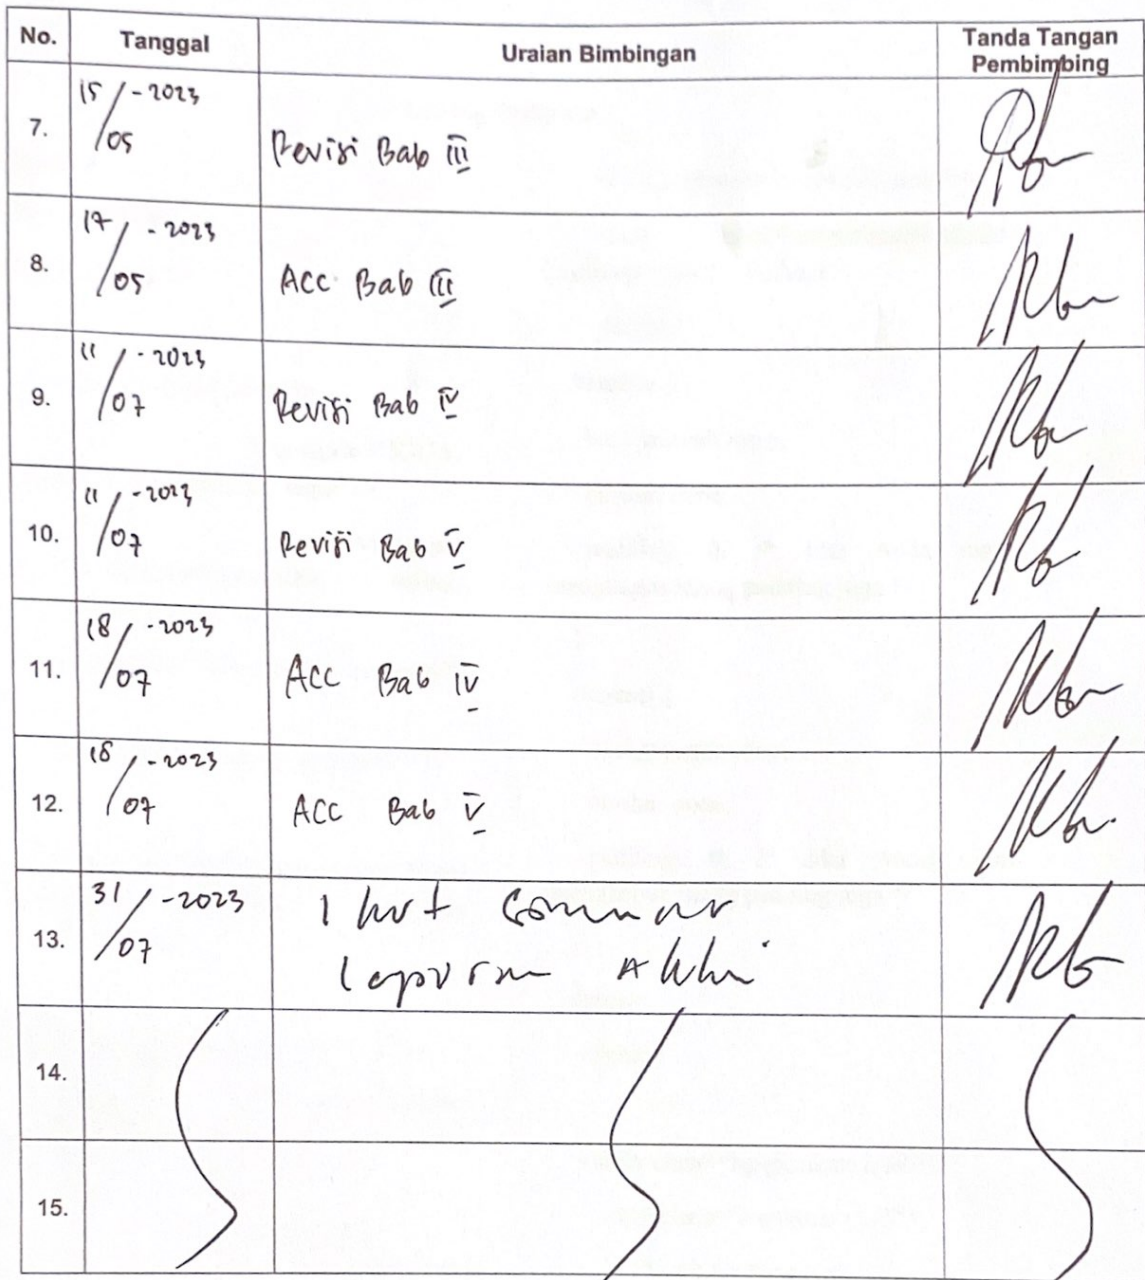 No. Tanggal Uraian Bimbingan Tanda Tangan
Pembimbing
7. 15/05-2023 Revisi Bab III
8. 17/05-2023 ACC Bab III
9. 11/07-2023 Revisi Bab IV
10. 11/07-2023 Revisi Bab V
11. 18/07-2023 ACC Bab IV
12. 18/07-2023 ACC Bab V
13. 31/07-2023 Ikut Seminar
Laporan Akhir
14.
15.